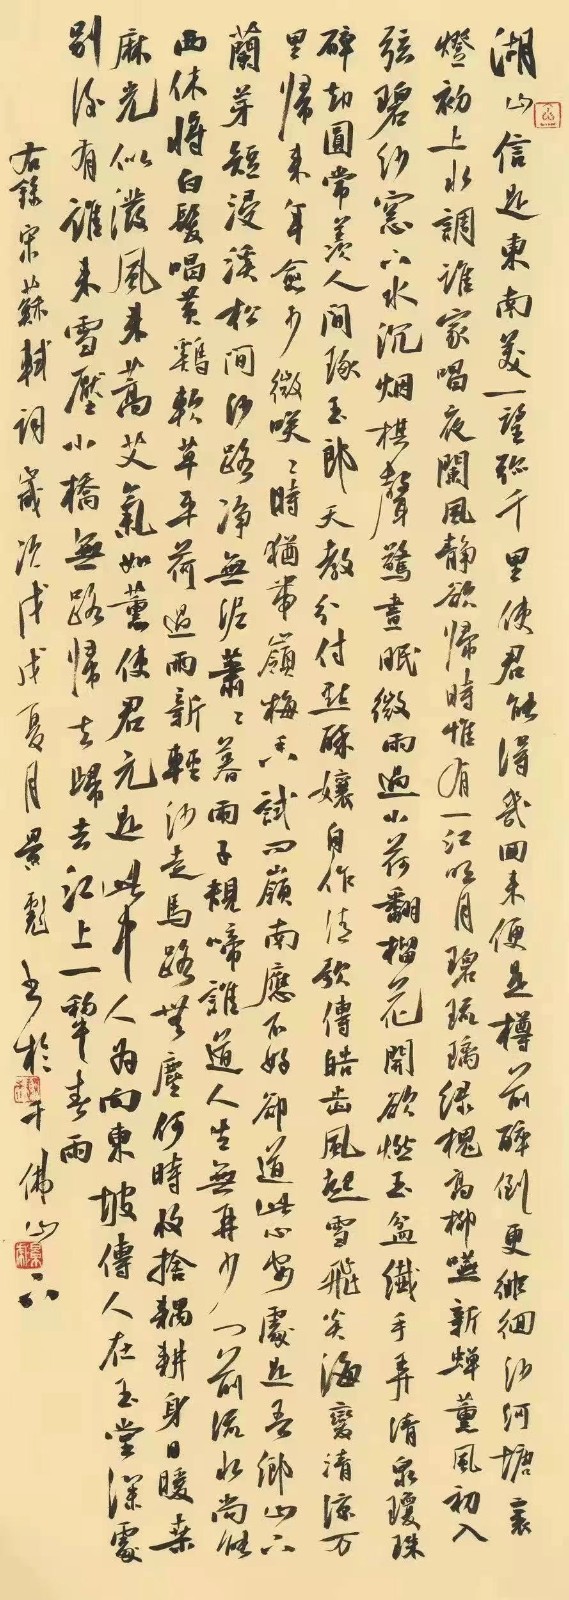 湖山信是東南美一望彌千里使君能得幾回來便是樽前醉倒更徘徊沙河塘裏
燈初上水調誰家唱夜闌風靜欲歸時惟有一江明月碧琉璃綠槐高柳咽新蟬薰風初入
弦碧紗窓下水沉烟棋聲驚晝眠微雨過小荷翻榴花開欲燃玉盆纖手弄清泉瓊珠
碎却圓常羨人間琢玉郎天教分付點酥孃自作清歌傳皓齒風起雪飛炎海變清涼万
里歸來年愈少微笑〻時猶帶嶺梅香試問嶺南應不好卻道此心安處是吾鄉山下
蘭芽短浸溪松間沙路淨無泥蕭〻暮雨子規啼誰道人生無再少門前流水尚能
西休將白髮唱黃鷄軟草平莎過雨新輕沙走馬路無塵何時收捨耦耕身日暖桑
麻光似潑風來蒿艾氣如薰使君元是此中人為向東坡傳人在玉堂深處
別後有誰來雪壓小橋無路歸去歸去江上一犁春雨
右錄宋蘇軾詞歲次戊戌夏月景彪書於千佛山下